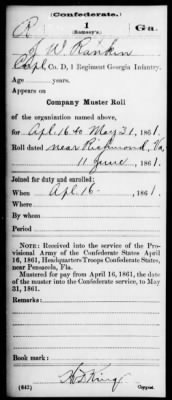 (Confederate.)
R 1 Ga.
(Ramsey's.)
J. W. Rankin
Capt Co. D, 1 Regiment Georgia Infantry.
Age years.
Appears on
Company Muster Roll
of the organization named above,
for Apl. 16 to May 31, 1861.
Roll dated near Richmond, Va.
11 June, 1861.
Joined for duty and enrolled:
When Apl. 16, 1861.
Where
By whom
Period
NOTE: Received into the service of the Pro-
visional Army of the Confederate States April
16, 1861, Headquarters Troops Confederate States,
near Pensacola, Fla.
Mustered for pay from April 16, 1861, the date
of the muster into the Confederate service, to May
31, 1861.
Remarks:
Book mark:
King
(642) Copyist.